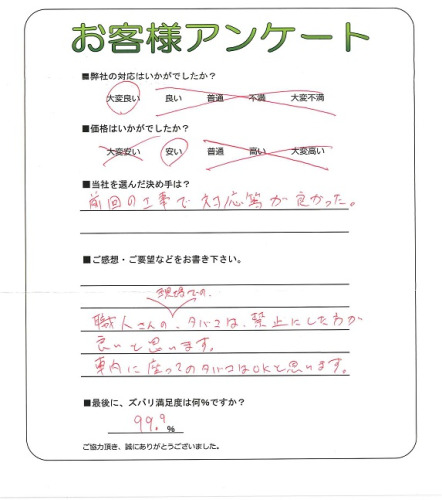 お客様アンケート
■弊社の対応はいかがでしたか?
大変良い 良い 普通 不満 大変不満
■価格はいかがでしたか?
大変安い 安い 普通 高い 大変高い
■当社を選んだ決め手は?
前回の工事で対応等が良かった。
■ご感想・ご要望などをお書き下さい。
現場での、
職人さんの、タバコは、禁止にした方が
良いと思います。
車内に座ってのタバコはOKと思います。
■最後に、ズバリ満足度は何%ですか?
99.9%
ご協力頂き、誠にありがとうございました。